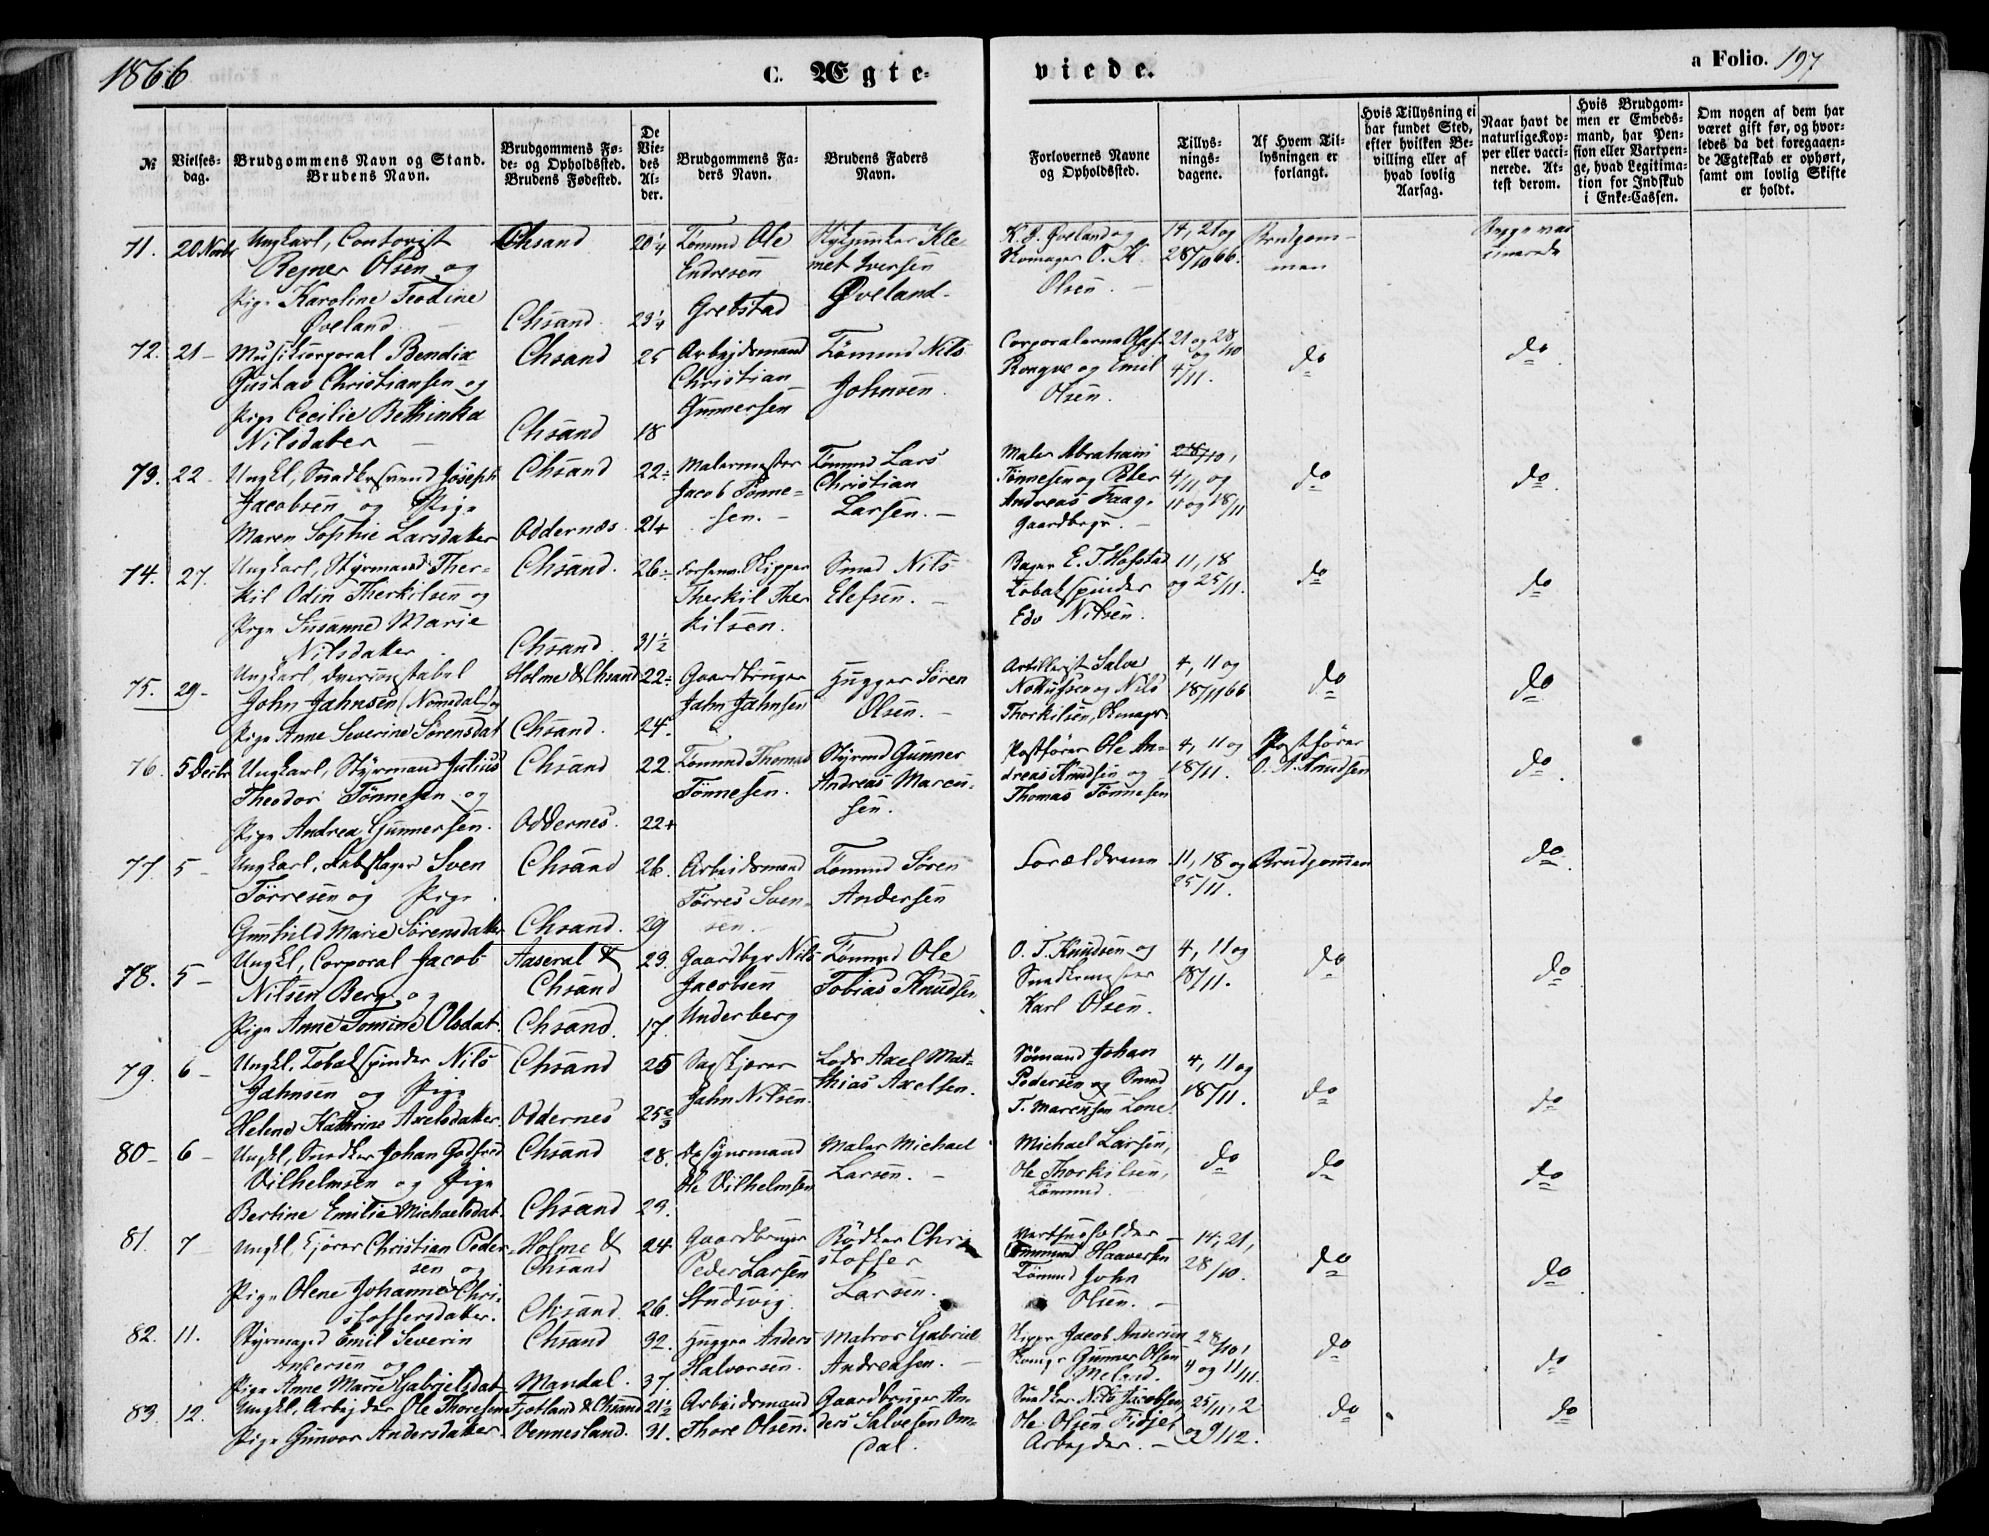 1866
C. Ægte-
viede.
a Folio. 197
№
Vielses-
dag.
Brudgommens Navn og Stand.
Brudens Navn.
Brudgommens Fø-
de- og Opholdssted.
Brudens Fødested.
De
Vie-
des
Al-
der.
Brudgommens Fa-
ders Navn.
Brudens Faders
Navn.
Forlovernes Navne
og Opholdssted.
Tillys-
nings-
dagene.
Af Hvem Til-
lysningen er
forlangt.
Hvis Tillysning ei
har fundet Sted,
efter hvilken Be-
villing eller af
hvad lovlig
Aarsag.
Naar havt de
naturlige Kop-
per eller vacci-
nerede. At-
test derom.
Hvis Brudgom-
men er Embeds-
mand, har Pen-
sion eller Vartpen-
ge, hvad Legitima-
tion for Indskud
i Enke-Cassen.
Om nogen af dem har
været gift før, og hvor-
ledes da det foregaaen-
de Ægteskab er ophørt,
samt om lovlig Skifte
er holdt.
71. 20 Novbr Ungkarl, Contorist Chsand 20¼ Tømmd Ole Kle-
Rejner Olsen og Endresen met Iversen
Pige Karoline Teodine Grebstad Øveland
Øveland Chsand 23¼
K. I. Øveland og 14, 21 og Brudgom- Begge vac
O. K. 28/10 66. men cinerede
Olsen.
72. 21 - Musikcorporal Bendix Chsand 25 Arbejdsmand Tømmd Nils
Gustav Christiansen og Christian Johnsen.
Pige Cecilie Bethinka Gunnersen
Nilsdatter Chsand 18
Corporalerne 21 og 28/10
Rongve og Emil og 4/11. do do
Olsen.
73. 22 - Ungkl, Snedkersvend Joseph Chsand 22 Malermester Tømmd Lars
Jacobsen og Pige Jacob Tønne- Christian
Maren Sophie Larsdatter Oddernæs 21 sen. Larsen.
Maler Abraham 28/10,
Tønnesen og Peter 4/11 og do do
Andreas Faag- 11 og 18/11
Gaardbrgr.
74. 27. Ungkarl, Styrmand Ther- Chsand. 26 Skipper Smed Nils
kil Odin Therkilsen og Therkil Ther Elefsen.
Pige Susanne Marie kilsen.
Nilsdatter Chsand. 31½
Bager E. T. Hofstad 11, 18
Tobakspinder og 25/11. do do
Edv Nilsen.
75. 29 - Ungkarl, Holme & Chsand 22 Gaardbruger Hugger Søren
John Jahnsen (Nomedal) og Jahn Jahnsen Olsen.
Pige Anne Severine Sørensdat Chsand. 24
Artillerist Salve 4, 11 og
og Nils 18/11 66 do do
Thorkilsen,
76. 5 Decbr Ungkarl, Styrmand Julius Chsand 22. Tømmd Thomas Styrmd Gunner
Theodor Tønnesen og Tønnesen. Andreas Marcu-
Pige Andrea Gunnersen. Oddernes. 22 sen.
Postfører Ole An- 4, 11 og Postfører
dreas Knudsen og 18/11. O. A. Knudsen do
Thomas Tønnesen
77. 5 - Ungkarl, Sven Chsand 26. Arbeidsmand Tømmd Søren
Tørresen og Pige Tørres Sven- Andersen
Gunhild Marie Sørensdatter Chsand. 29 sen.
Forældrene 11, 18 og Brudgommen do
25/11.
78. 5 - Ungkl, Corporal Jacob Aaseral & 23. Gaardbgr Nils Tømmd Ole
Nilsen Berg og Chsand Jacobsen Tobias Knudsen
Pige Anne Tomine Olsdat. Chsand. 17. Underberg
O. T. Knudsen og 4, 11 og
Snedkermester 18/11. do do
Karl Olsen.
79. 6 - Ungkl, Tobakspinder Nils Chsand 25 Sagskjærer Lods Axel Mat-
Jahnsen og Pige Jahn Nilsen. thias Axelsen.
Helene Kathrine Axelsdatter Oddernes 25⅔
Sømand Johan 4, 11 og
Pedersen og Smed 18/11. do do
T. Marcusen Lone
80 - 6 - Ungkl, Snedker Johan Godfred Chsand 28. Maler Michael
Vilhelmsen og Pige Ole Vilhelmsen Larsen.
Bertine Emilie Michaelsdat. Chsand 23.
Michael Larsen,
Ole Thorkilsen, do do do
Tømmd.
81. 7 Ungkl, Kjører Christian Peder- Holme & 24 Gaardbruger Bødker Chri
sen og Chsand Peder Larsen stoffer
Pige Olene Johanne Chri- Studsvig. Larsen.
stoffersdatter. Chsand 26.
Vertshusholder 14, 21,
Haaversen 28/10. do do
Tømmd John
Olsen.
82. 11. Styrmand Emil Severin Chsand 32. Hugger Anders Matros Gabriel
Andersen og Halvorsen. Andreasen.
Pige Anne Marie Gabrielsdat Mandal. 37.
Jacob Andersen 28/10,
Gunner Olsen 4 og 11/11. do do
Meland.
83. 12. Ungkl, Arbejder Ole Thoresen Fjotland & Chsand 21½ Arbeidsmand Gaardbruger An-
Pige Gunvor Andersdatter Vennesland. 31. Thore Olsen. ders Salvesen Om-
dal.
Snedker Nils Jacobsen, 25/11, 2
Ole Olsen Fidje, og 9/12. do do
Arbejder.